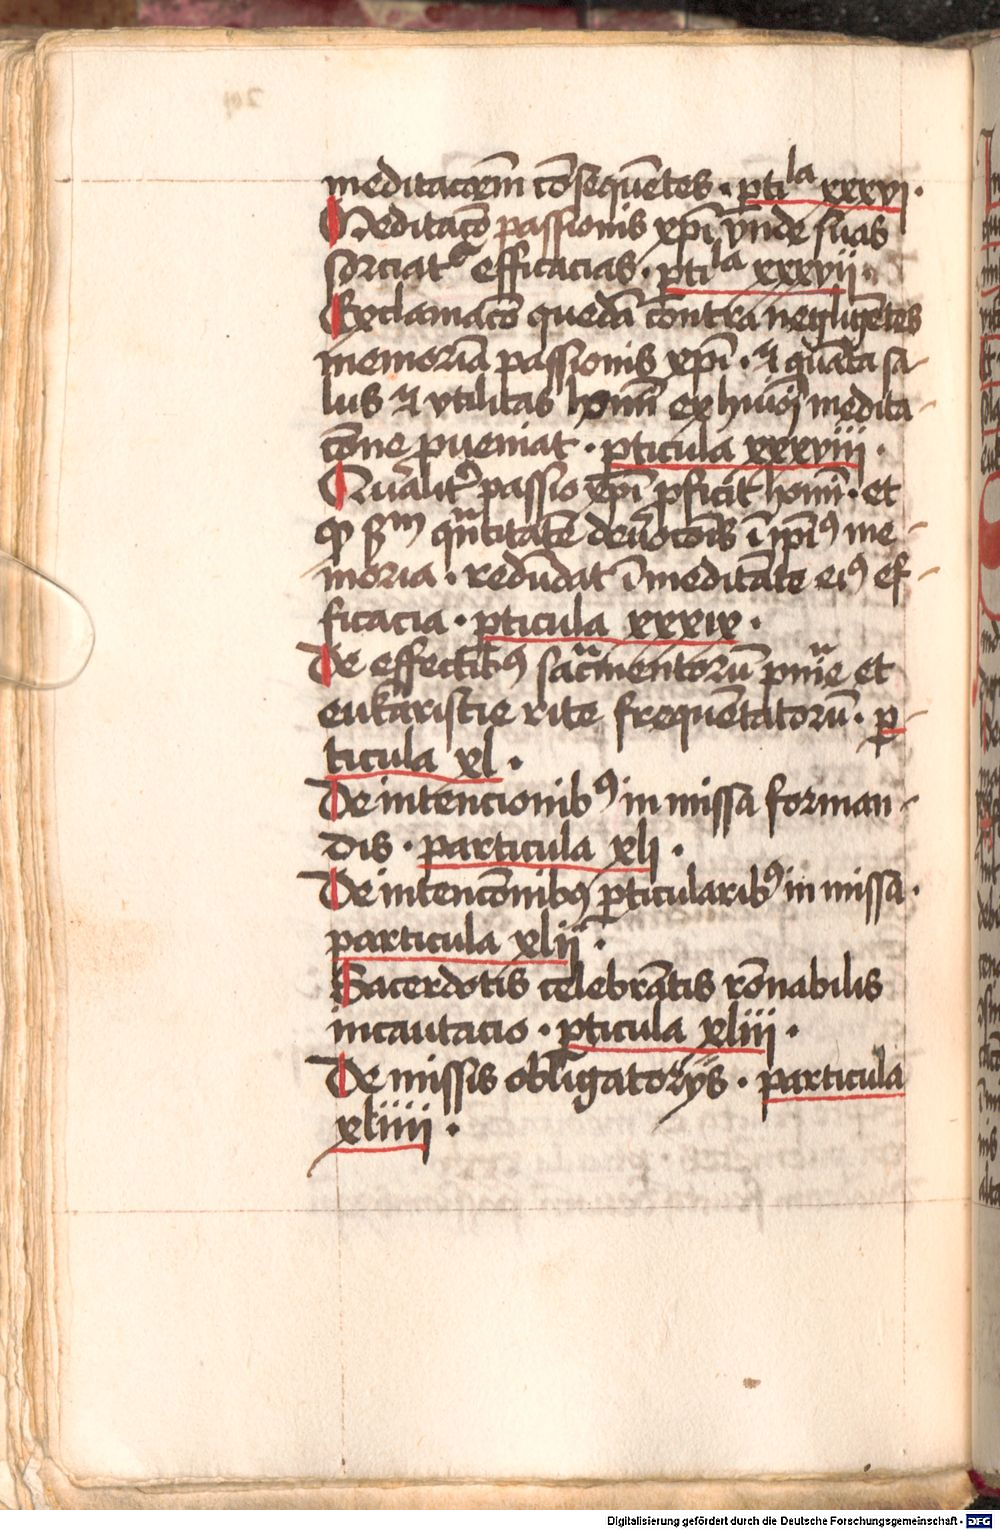 meditacōēm cōsequētes . pti^la xxxvi .
Meditacō passionis xpī vnde suas
sorciat^r efficacias . pti^la xxxvii .
Exclamacō quedā contra negligētes
memoriā passionis xpī . et quāta sa-
lus et vtilitas homī ex hmōi medita-
cōne pueniat . pticula xxxviii .
Qualit^r passio xpī pficit homī . et
qͥ scdm quātitatē deuocōis ī ipi⁹ me-
moria . redūdat ī meditāte ei⁹ ef-
ficacia . pticula xxxix .
De effectib⁹ sacmentorū pnīe et
eukaristie rite frequētatorū . p-
ticula xl .
De intencionib⁹ in missa forman-
dis . particula xli .
De intencōnibus pticularib⁹ in missa .
particula xlii .
Sacerdotis celebrātis rōnabilis
incautacio . pticula xliii .
De missis obligatorijs . particula
xliiii .
Digitalisierung gefördert durch die Deutsche Forschungsgemeinschaft - DFG